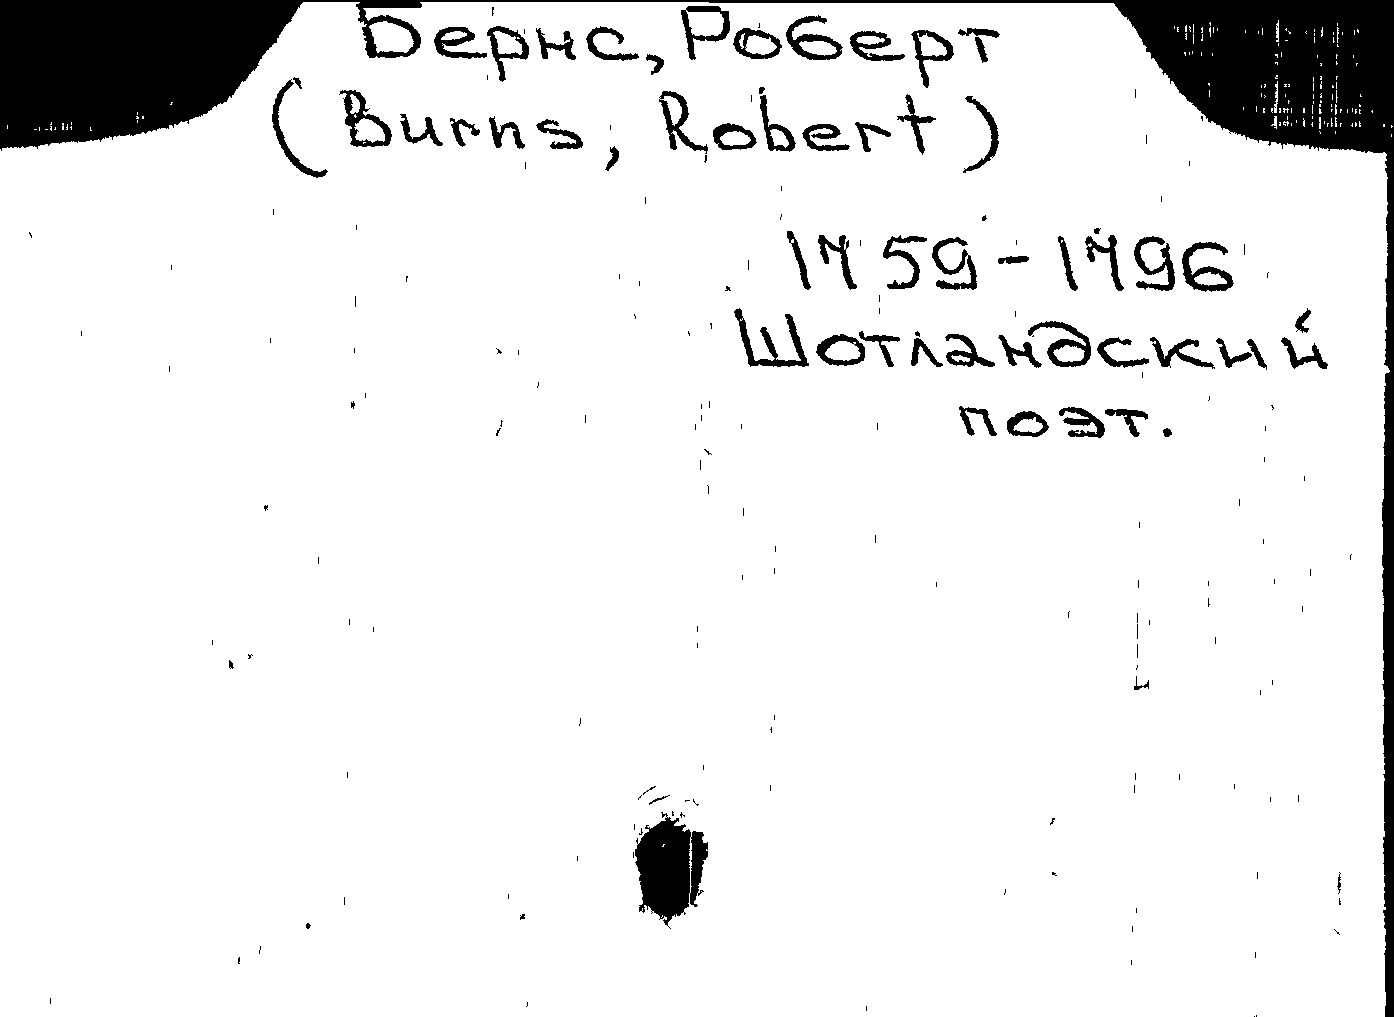 Бернс, Роберт
(Burns, Robert)
1759-1796
Шотландский
поэт.